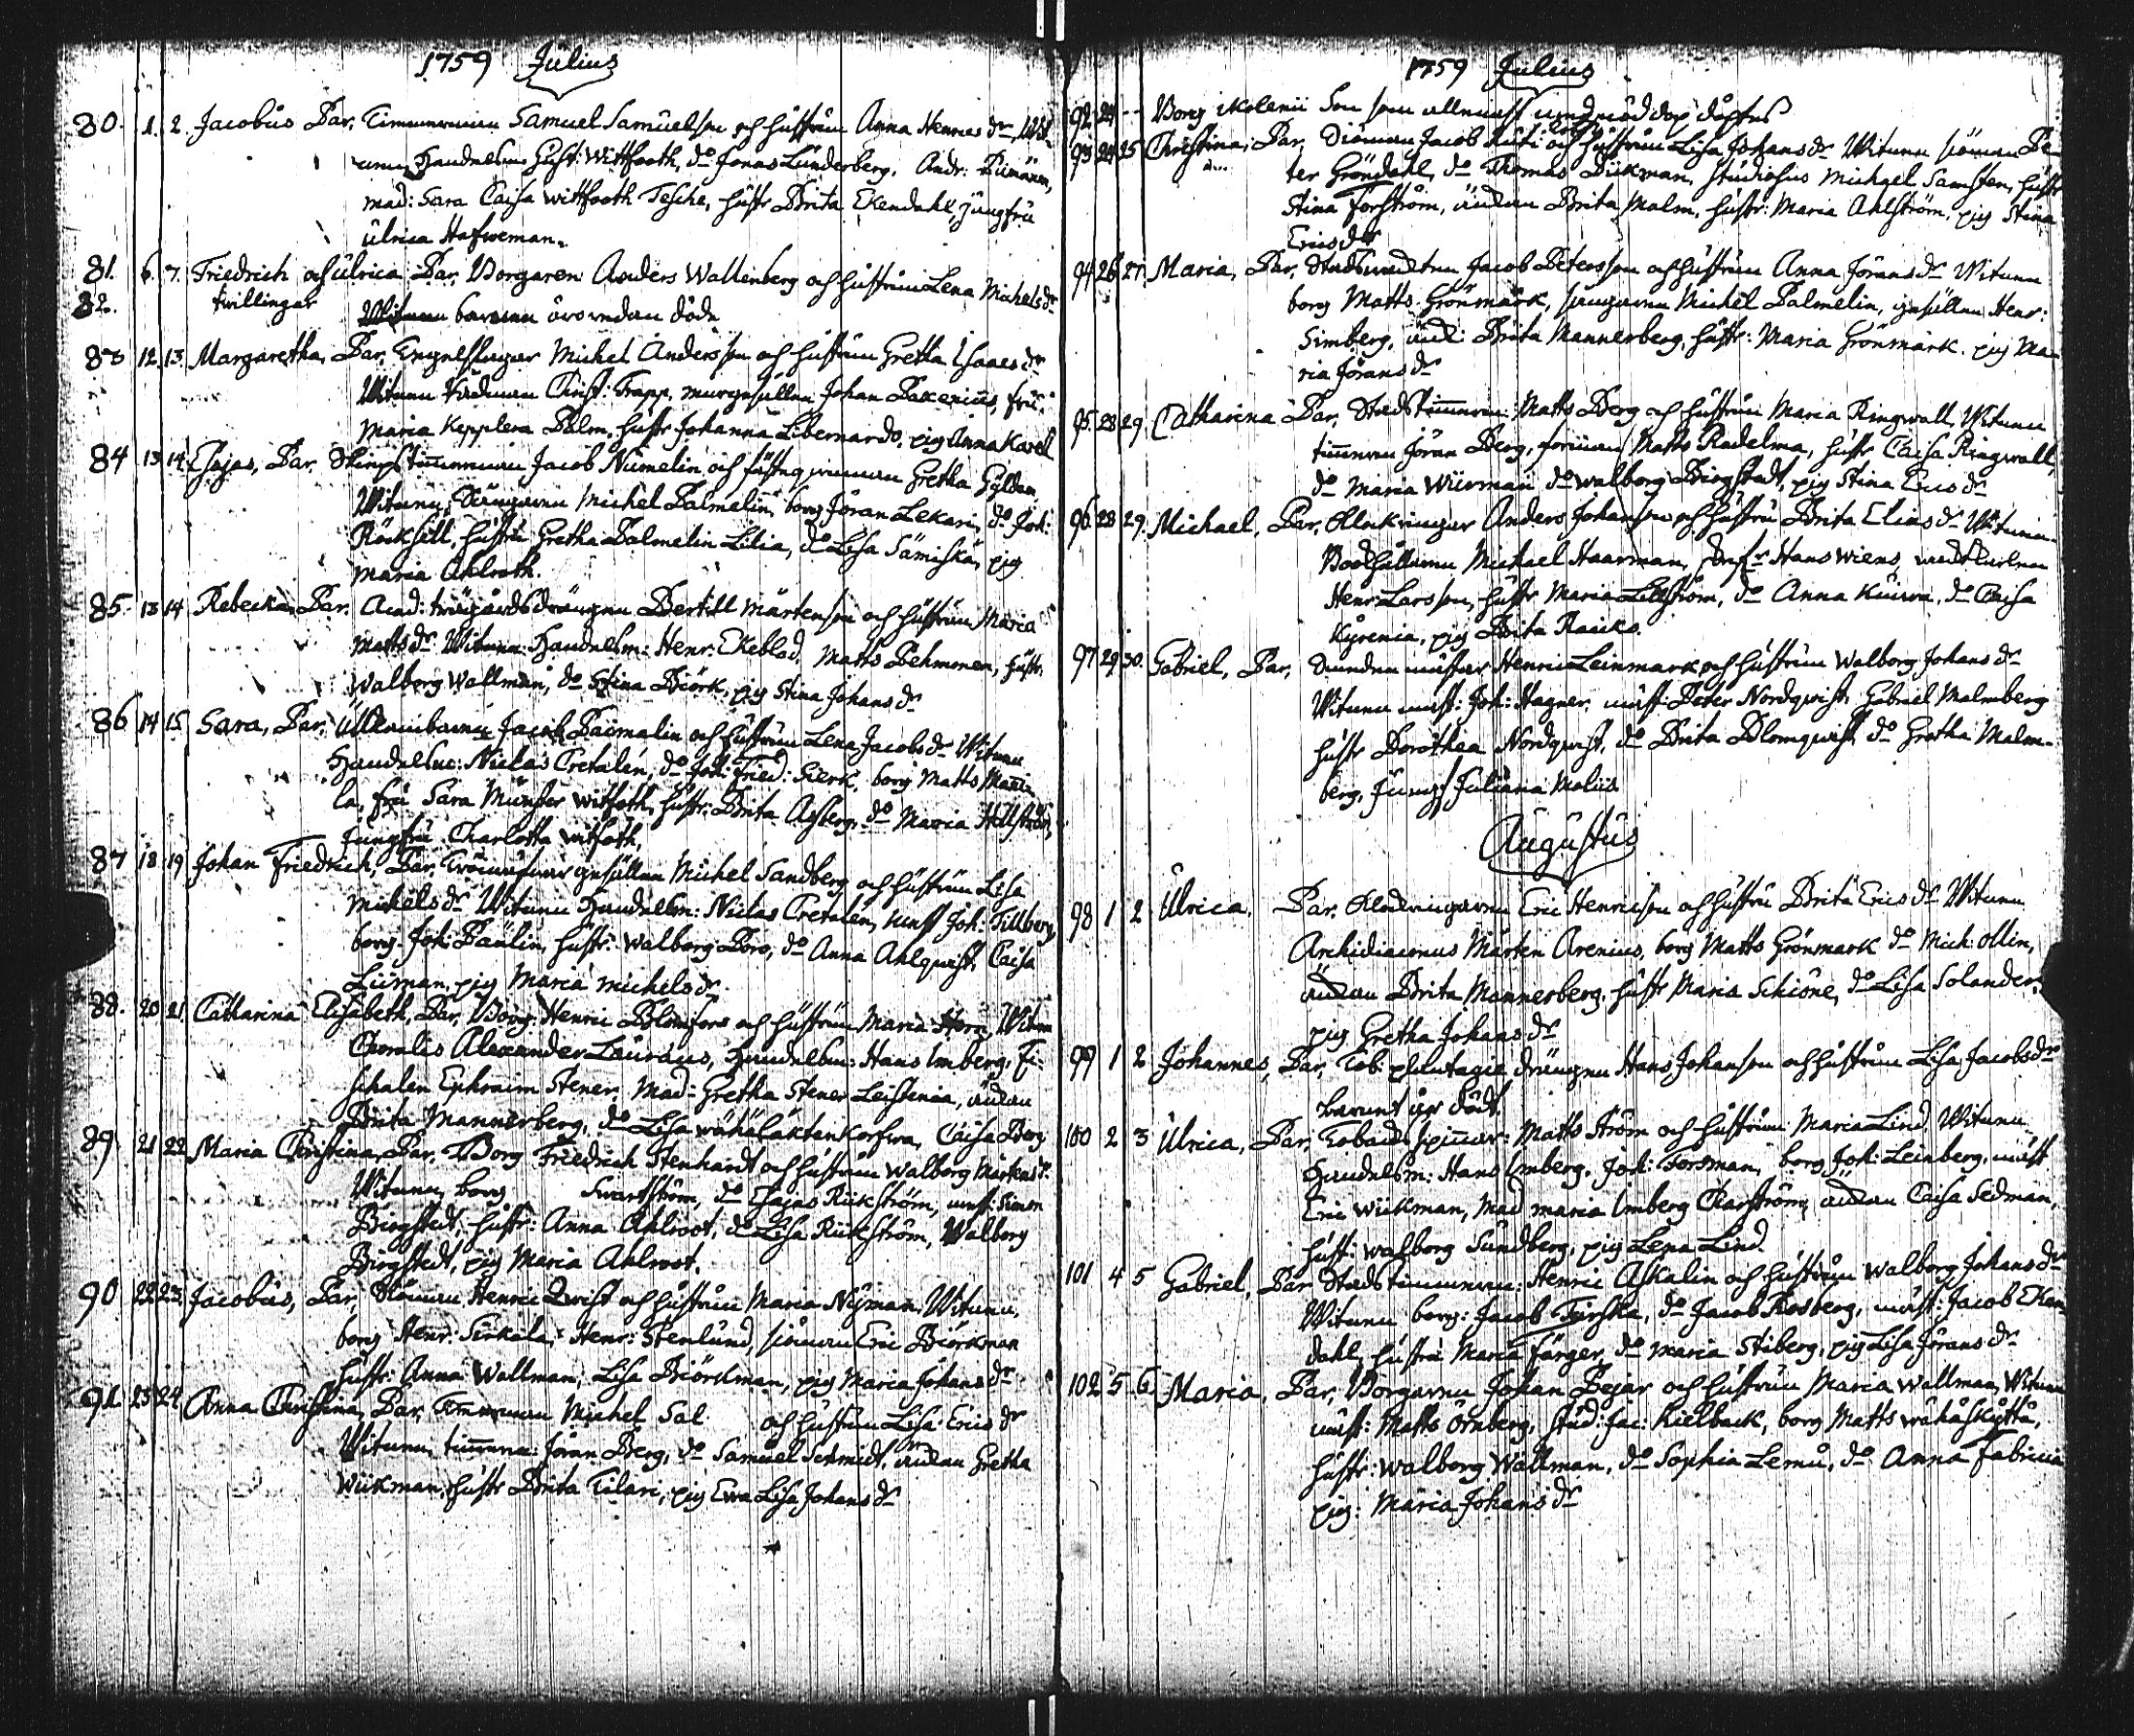 1759 Julius
80. 1. 2. Jacobus Par. Timmerman Samuel Samuelson och hustrun Anna Henrics dr, Witt-
Handelsm Gust: Wittfooth, do Jonas Lunderberg, Andr:
mad: Sara Caisa Wittfooth Tesche, hustr Brita Ekendahl, jungfru
Ulrica Hafweman.
81. 6. 7. Friedrich och Ulrica Par. Borgaren Anders Wallenberg och hustrun Lena Michels dr
82. twillingar barnen äro redan döda
83 12. 13. Margaretha, Par. Michel Andersson och hustrun Gretha Isaacs dr
Witnen Rådman Christ: Trapp, murgesällen Johan Bakenius, fru
Maria Kepplera Palm, hustr Johanna Libernardo, pig Anna Karel
84 13 14 Esajas, Par. Skeps timmerman Jacob Numelin och fästeqwinnan Gretha Gylden
Witnen, Michel Palmelin, borg Jöran Lekari, do Joh:
Röcksell, hustru Gretha Palmelin Lilia, do Lisa Sämiskä, pig
Maria Ahlroth.
85. 13 14 Rebecka, Par. Acad: trägårdsdrängen Bertill Mårtenson och hustrun Maria
Matts dr Witnen Handelsm: Henr: Ekeblad, Matts Behmonen, hustr
Walborg Wallman, do Stina Biörk, pig Stina Johans dr
86 14 15 Sara, Par. Jacob Baimalin och hustrun Lena Jacobs dr Witnen
Handelsm: Niclas Cretalén, do Joh: Fried: Sierk, borg Matts Manni
la, fru Sara Münster Witfoth, hustr: Brita Asberg, do Maria Hellström,
Jungfru Charlotta Witfoth,
87 18 19 Johan Friedrich, Par. gesällen Michel Sandberg och hustrun Lisa
Michels dr Witnen Handelsm: Niclas Cretalen, mäst Joh: Tillberg,
borg Joh: Paulin, hustr: Walborg Boro, do Anna Ahlqwist, Caisa
Liiman, pig Maria Michels dr.
88. 20 21. Catharina Elisabeth, Par. Borg: Henric Blomfors och hustrun Maria Horn, Witnen
Choralis Alexander Lauraus, Handelsm: Hans Imberg, Fi-
schalen Ephraim Stener, Mad: Gretha Stener Leistenia, änkan
Brita Mannerberg, do Lisa Wähäläktenkorfwa, Caisa Berg
89 21 22 Maria Christina, Par. Borg Friedrich Stenhardt och hustrun Walborg Markus d.
Witnen, borg Swartström, do Esajas Riikström, mäst: Simon
Birgstedt, hustr: Anna Ahlroot, do Lisa Riikström, Walborg
Birgstedt, pig Maria Ahlroot.
90 22 23. Jacobus, Par. Slöman Henric Qwist och hustrun Maria Nyman. Witnen,
borg Henr: Sirkala, Henr: Stenlund, sjöman Eric Biörkman
hustr: Anna Wallman, Lisa Biörckman, pig Maria Johans dr
91. 23 24. Anna Christina, Par. Timmerman Michel Sal och hustrun Lisa Erics dr
Witnen, timmerm: Jöran Berg, do Samuel Schmidt, änkan Gretha
Wiikman, hustr Brita Tilari, pig Ewa Lisa Johans dr
1759 Julius
92 24 -- Borg Molenii Son som allenast undfick nöd dop döptes
93 24 25 Christina, Par. Sjöman Jacob Ruti och hustrun Lisa Johans dr Witnen sjöman Pe-
ter Gröndahl, do Thomas Diikman, studiosus Michael Samsten, hustr
Stina Forström, änkan Brita Malm, hustr: Maria Ahlström, pig Stina
Erics dr
94 26 27. Maria, Par. Jacob Petersson och hustrun Anna Jörans dr Witnen
borg Matts Grönmark, Michel Palmelin, gesällen Henr:
Simberg, änk: Brita Mannerberg, hustr: Maria Grönmark, pig Ma-
ria Jörans dr
95. 28 29. Catharina Par. Stads timmerm: Matts Berg och hustrun Maria Ringwall, Witnen
timmerm Jöran Berg, Matts Radelma, hustr Caisa Ringwall,
do Maria Wiirman do Walborg Birgstedt, pig Stina Erics dr
96. 28 29. Michael, Par. Anders Johanson och hustru Brita Elias dr Witnen
Bodhållaren Michael Haarman, Hans Wiens, wacktkarlen
Henr Larsson, hustr Maria Lillström, do Anna, do Caisa
Kyrenia, pig Brita Raiko.
97 29 30. Gabriel, Par. mästar Henric Leinmark och hustrun Walborg Johans dr
Witnen mäst: Joh: Hagner, mäst: Peter Nordqwist, Gabriel Malmberg
hustr Dorothea Nordqwist, do Brita Blomqwist do Gretha Malm-
berg, Jungf Juliana Moliis
Augustus
98 1 2 Ulrica, Par. Eric Henricson och hustru Brita Erics dr Witnen
Archidiaconus Mårten Arenius, borg Matts Grönmark do Mich: Ollin,
änkan Brita Mannerberg, hustr Maria Schiöne, do Lisa Solander,
pig Gretha Johans dr
99 1 2 Johannes, Par. Tob: plantagie drängen Hans Johanson och hustrun Lisa Jacobs dr
barnet är dödt.
100 2 3 Ulrica, Par. Tobacks spinnar: Matts Ström och hustrun Maria Lind, Witnen
Handelsm: Hans Imberg, Joh: Forsman, borg Joh: Leinberg, mäst
Eric Wiikman, Mad Maria Imberg Charström, änkan Caisa Sedman,
hust: Walborg Sundberg, pig Lena Lind.
101 4 5 Gabriel, Par. Stads timmerm: Henric Askalin och hustrun Walborg Johans dr
Witnen borg: Jacob Turska, do Jacob Rosberg, mäst: Jacob Eken-
dahl, hustru Maria Färger, do Maria Stiberg, pig Lisa Jörans dr
102 5 6. Maria, Par. Borgaren Johan Bejar och hustrun Maria Wallman, Witnen
mäst: Matts Örnberg, Stud: Jac: Kielback, borg Matts Wähäskyttä,
hustr: Walborg Wallman, do Sophia Lemu, do Anna Fabricia
pig: Maria Johans dr